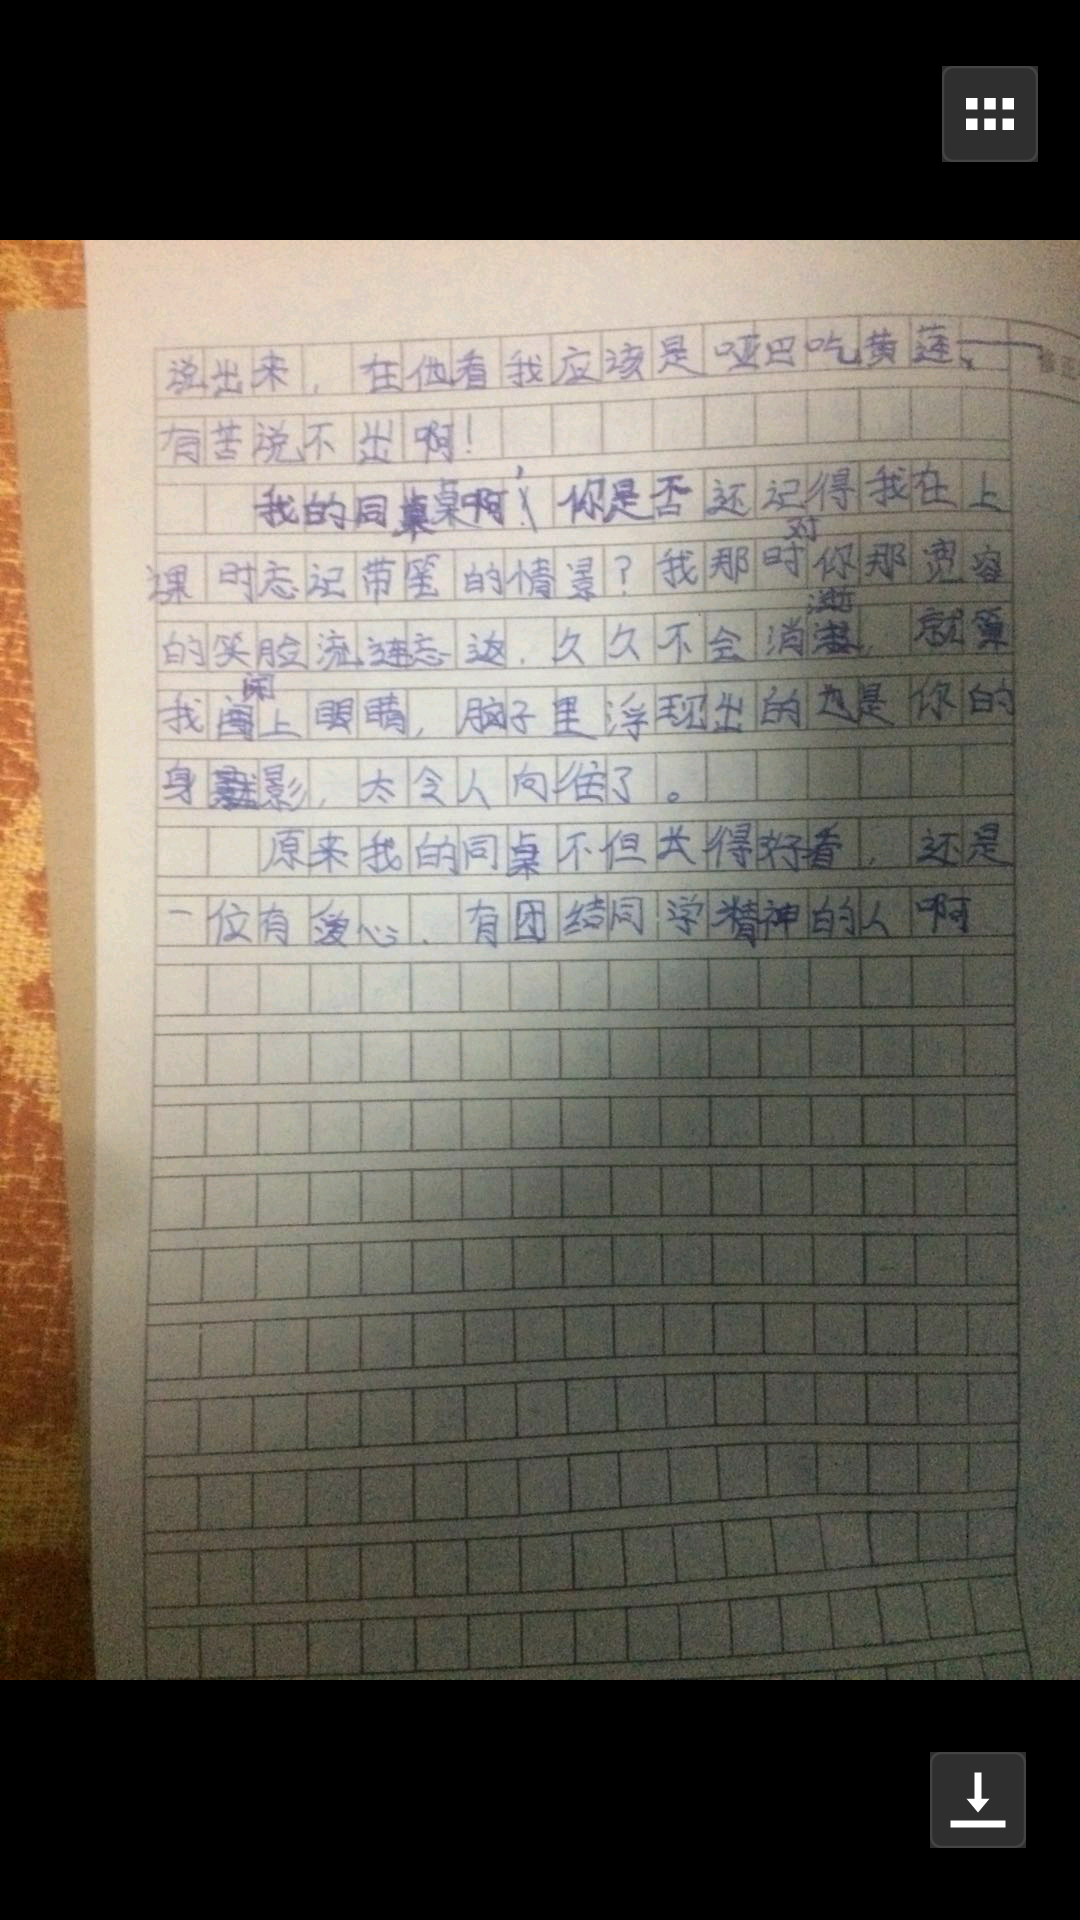 说出来，在他看我应该是哑巴吃黄莲、
有苦说不出啊！
我的同桌啊，你是否还记得我在上
课时忘记带笔的情景？我那时对你那宽容
的笑脸流连忘返，久久不会消逝，就算
我闭上眼睛，脑子里浮现出的也是你的
身影，太令人向往了。
原来我的同桌不但长得好看，还是
一位有爱心、有团结同学精神的人啊